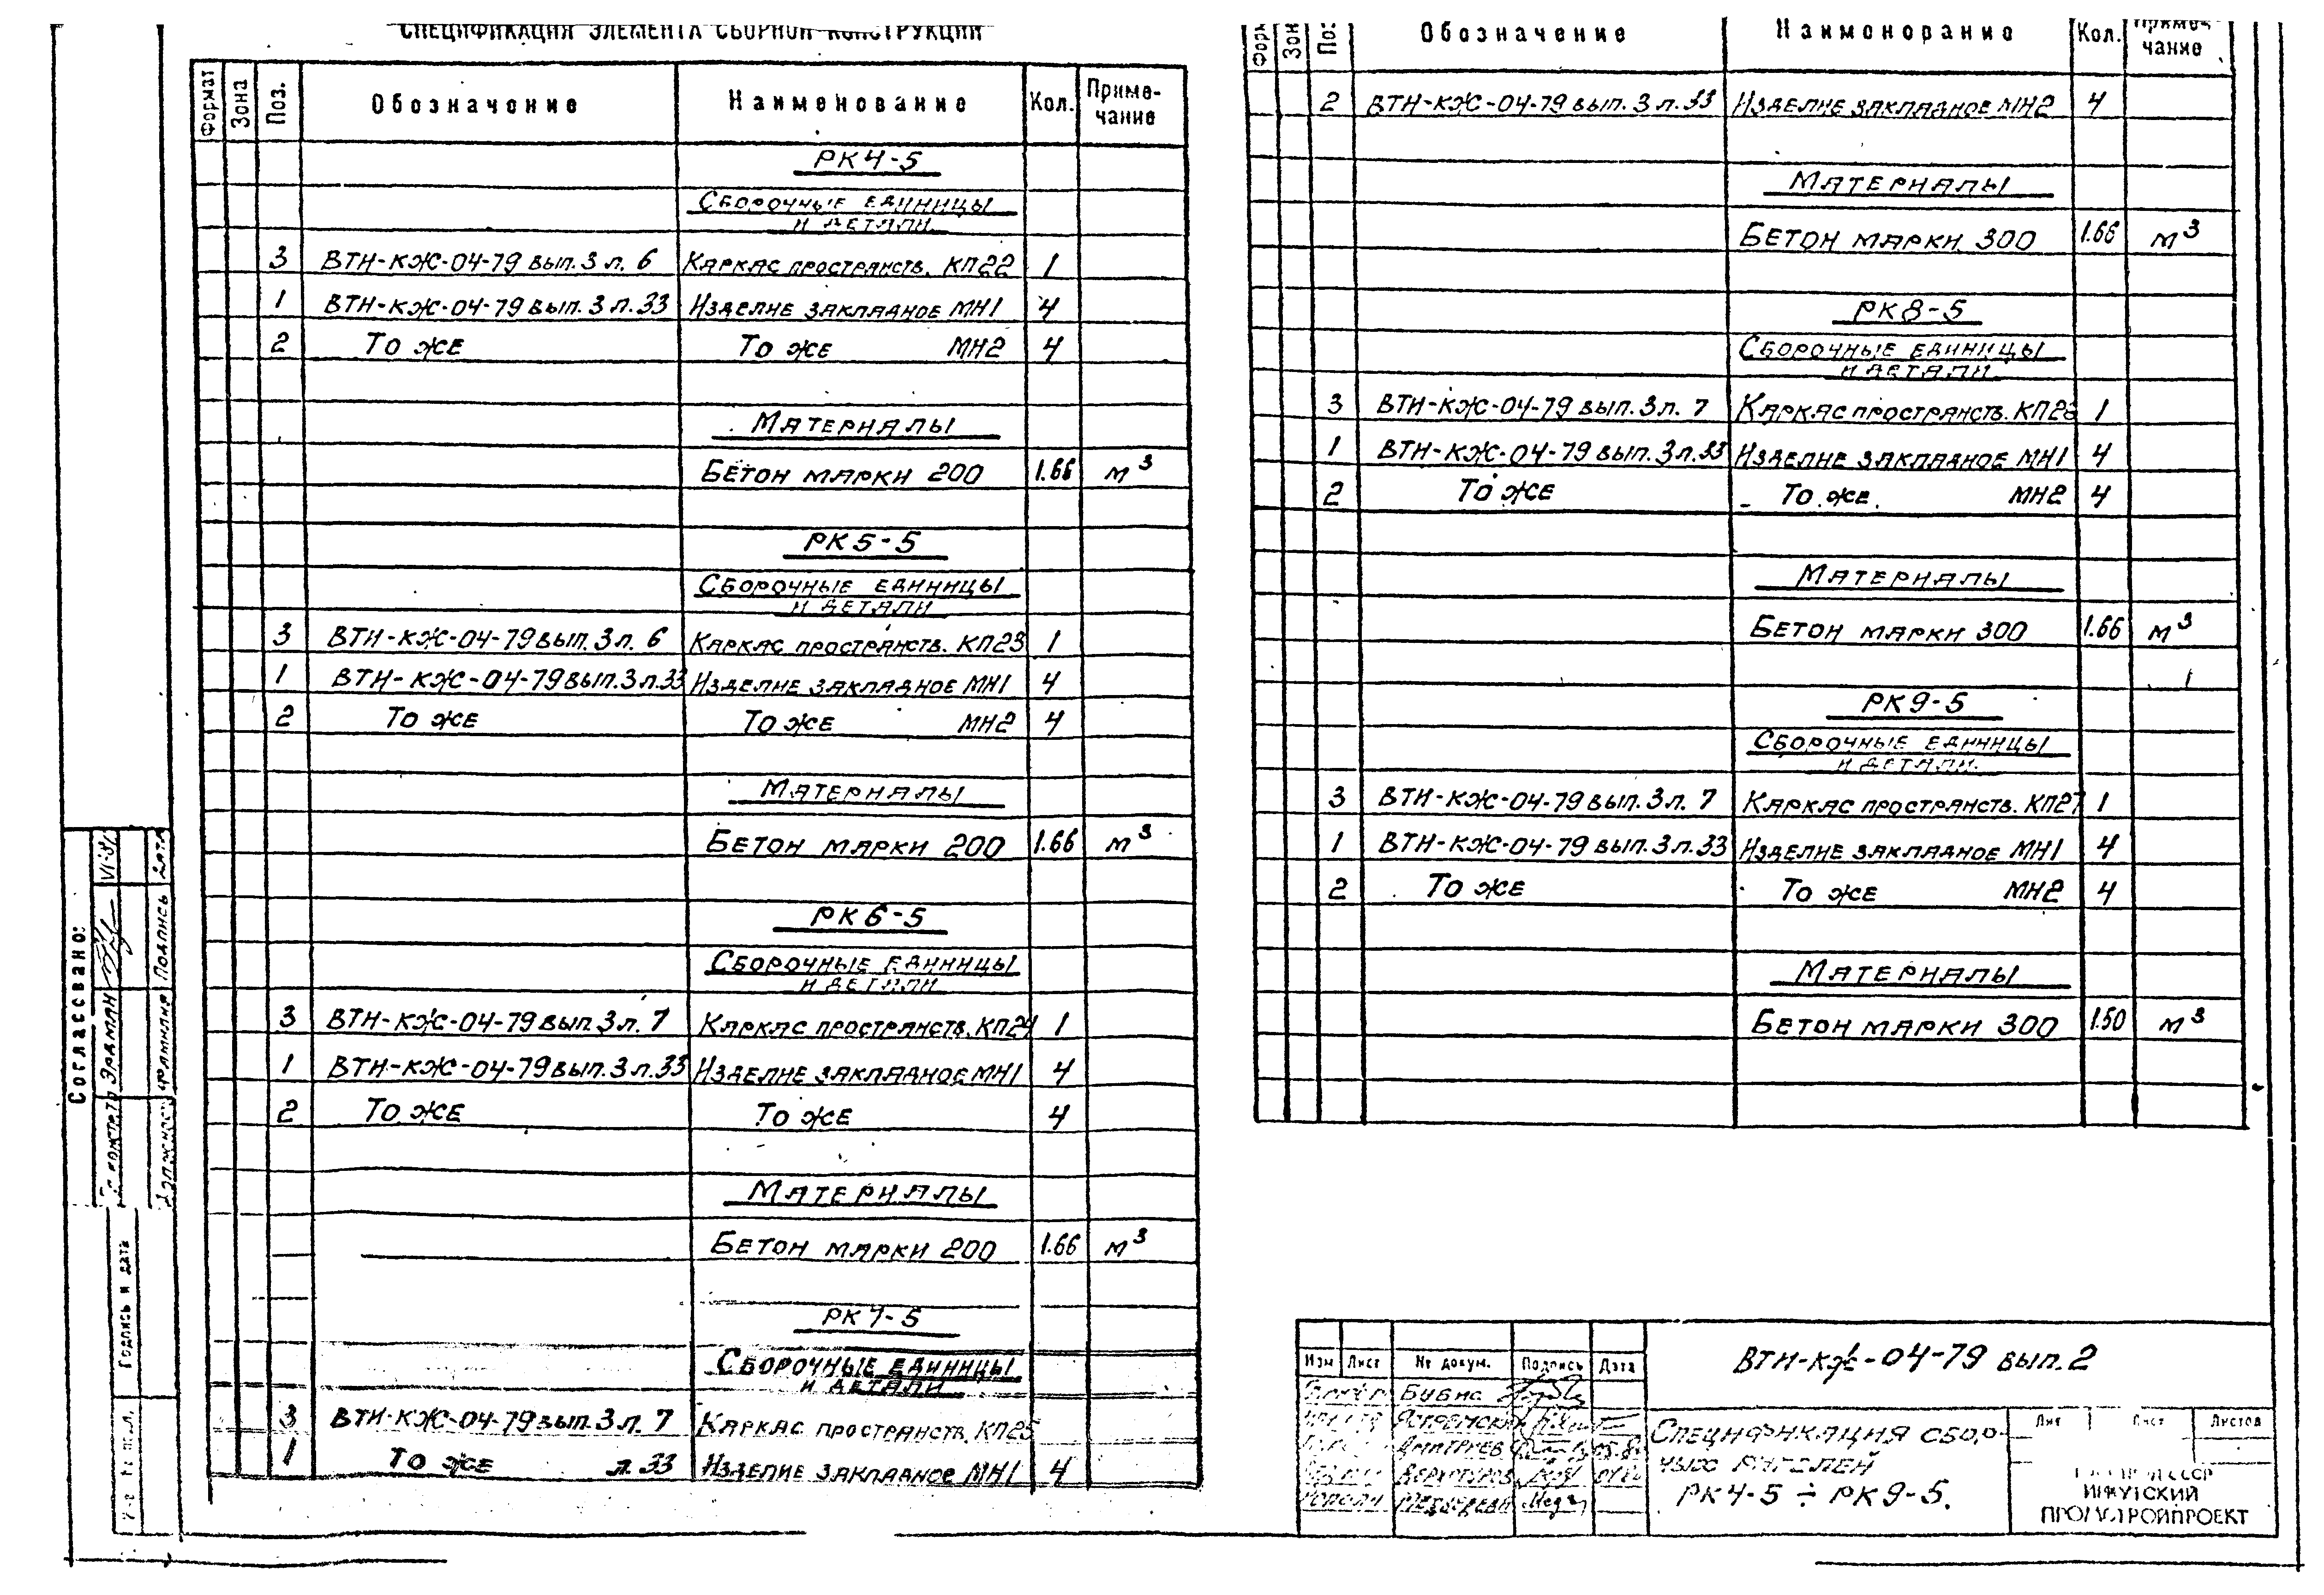 СПЕЦИФИКАЦИЯ ЭЛЕМЕНТА СБОРНОЙ КОНСТРУКЦИИ
Формат Зона Поз. Обозначение Наименование Кол. Приме-
чание
РК4-5
Сборочные единицы
и детали
3 ВТИ-КЖ-04-79 вып. 3 л. 6 Каркас пространств. КП22 1
1 ВТИ-КЖ-04-79 вып. 3 л. 33 Изделие закладное МН1 4
2 То же То же МН2 4
Материалы
Бетон марки 200 1.66 м³
РК5-5
Сборочные единицы
и детали
3 ВТИ-КЖ-04-79 вып. 3 л. 6 Каркас пространств. КП23 1
1 ВТИ-КЖ-04-79 вып. 3 л. 33 Изделие закладное МН1 4
2 То же То же МН2 4
Материалы
Бетон марки 200 1.66 м³
РК6-5
Сборочные единицы
и детали
3 ВТИ-КЖ-04-79 вып 3 л. 7 Каркас пространств. КП24 1
1 ВТИ-КЖ-04-79 вып. 3 л. 33 Изделие закладное МН1 4
2 То же То же 4
Материалы
Бетон марки 200 1.66 м³
РК7-5
Сборочные единицы
и детали
3 ВТИ-КЖ-04-79 вып. 3 л. 7 Каркас пространств. КП25
1 То же л. 33 Изделие закладное МН1 4
Форм Зон Поз. Обозначение Наимонорание Кол. Приме-
чание
2 ВТИ-КЖ-04-79 вып. 3 л. 33 Изделие закладное МН2 4
Материалы
Бетон марки 300 1.66 м³
РК8-5
Сборочные единицы
и детали
3 ВТИ-КЖ-04-79 вып. 3 л. 7 Каркас пространств. КП26 1
1 ВТИ-КЖ-04-79 вып. 3 л. 33 Изделие закладное МН1 4
2 То же То же МН2 4
Материалы
Бетон марки 300 1.66 м³
РК9-5
Сборочные единицы
и детали.
3 ВТИ-КЖ-04-79 вып. 3 л. 7 Каркас пространств. КП27 1
1 ВТИ-КЖ-04-79 вып. 3 л. 33 Изделие закладное МН1 4
2 То же То же МН2 4
Материалы
Бетон марки 300 1.50 м³
Согласвано:
Эрдман
Должность Фамилия Подпись Дата
Подпись и дата
Изм Лист № докум. Подпись Дата
Бубис
Дмитриев
ВТИ-КЖ-04-79 вып. 2
Спецификация сбор-
ных ригелей
РК4-5 ÷ РК9-5.
Лит Лист Листов
СССР
ИРКУТСКИЙ
ПРОМСТРОЙПРОЕКТ